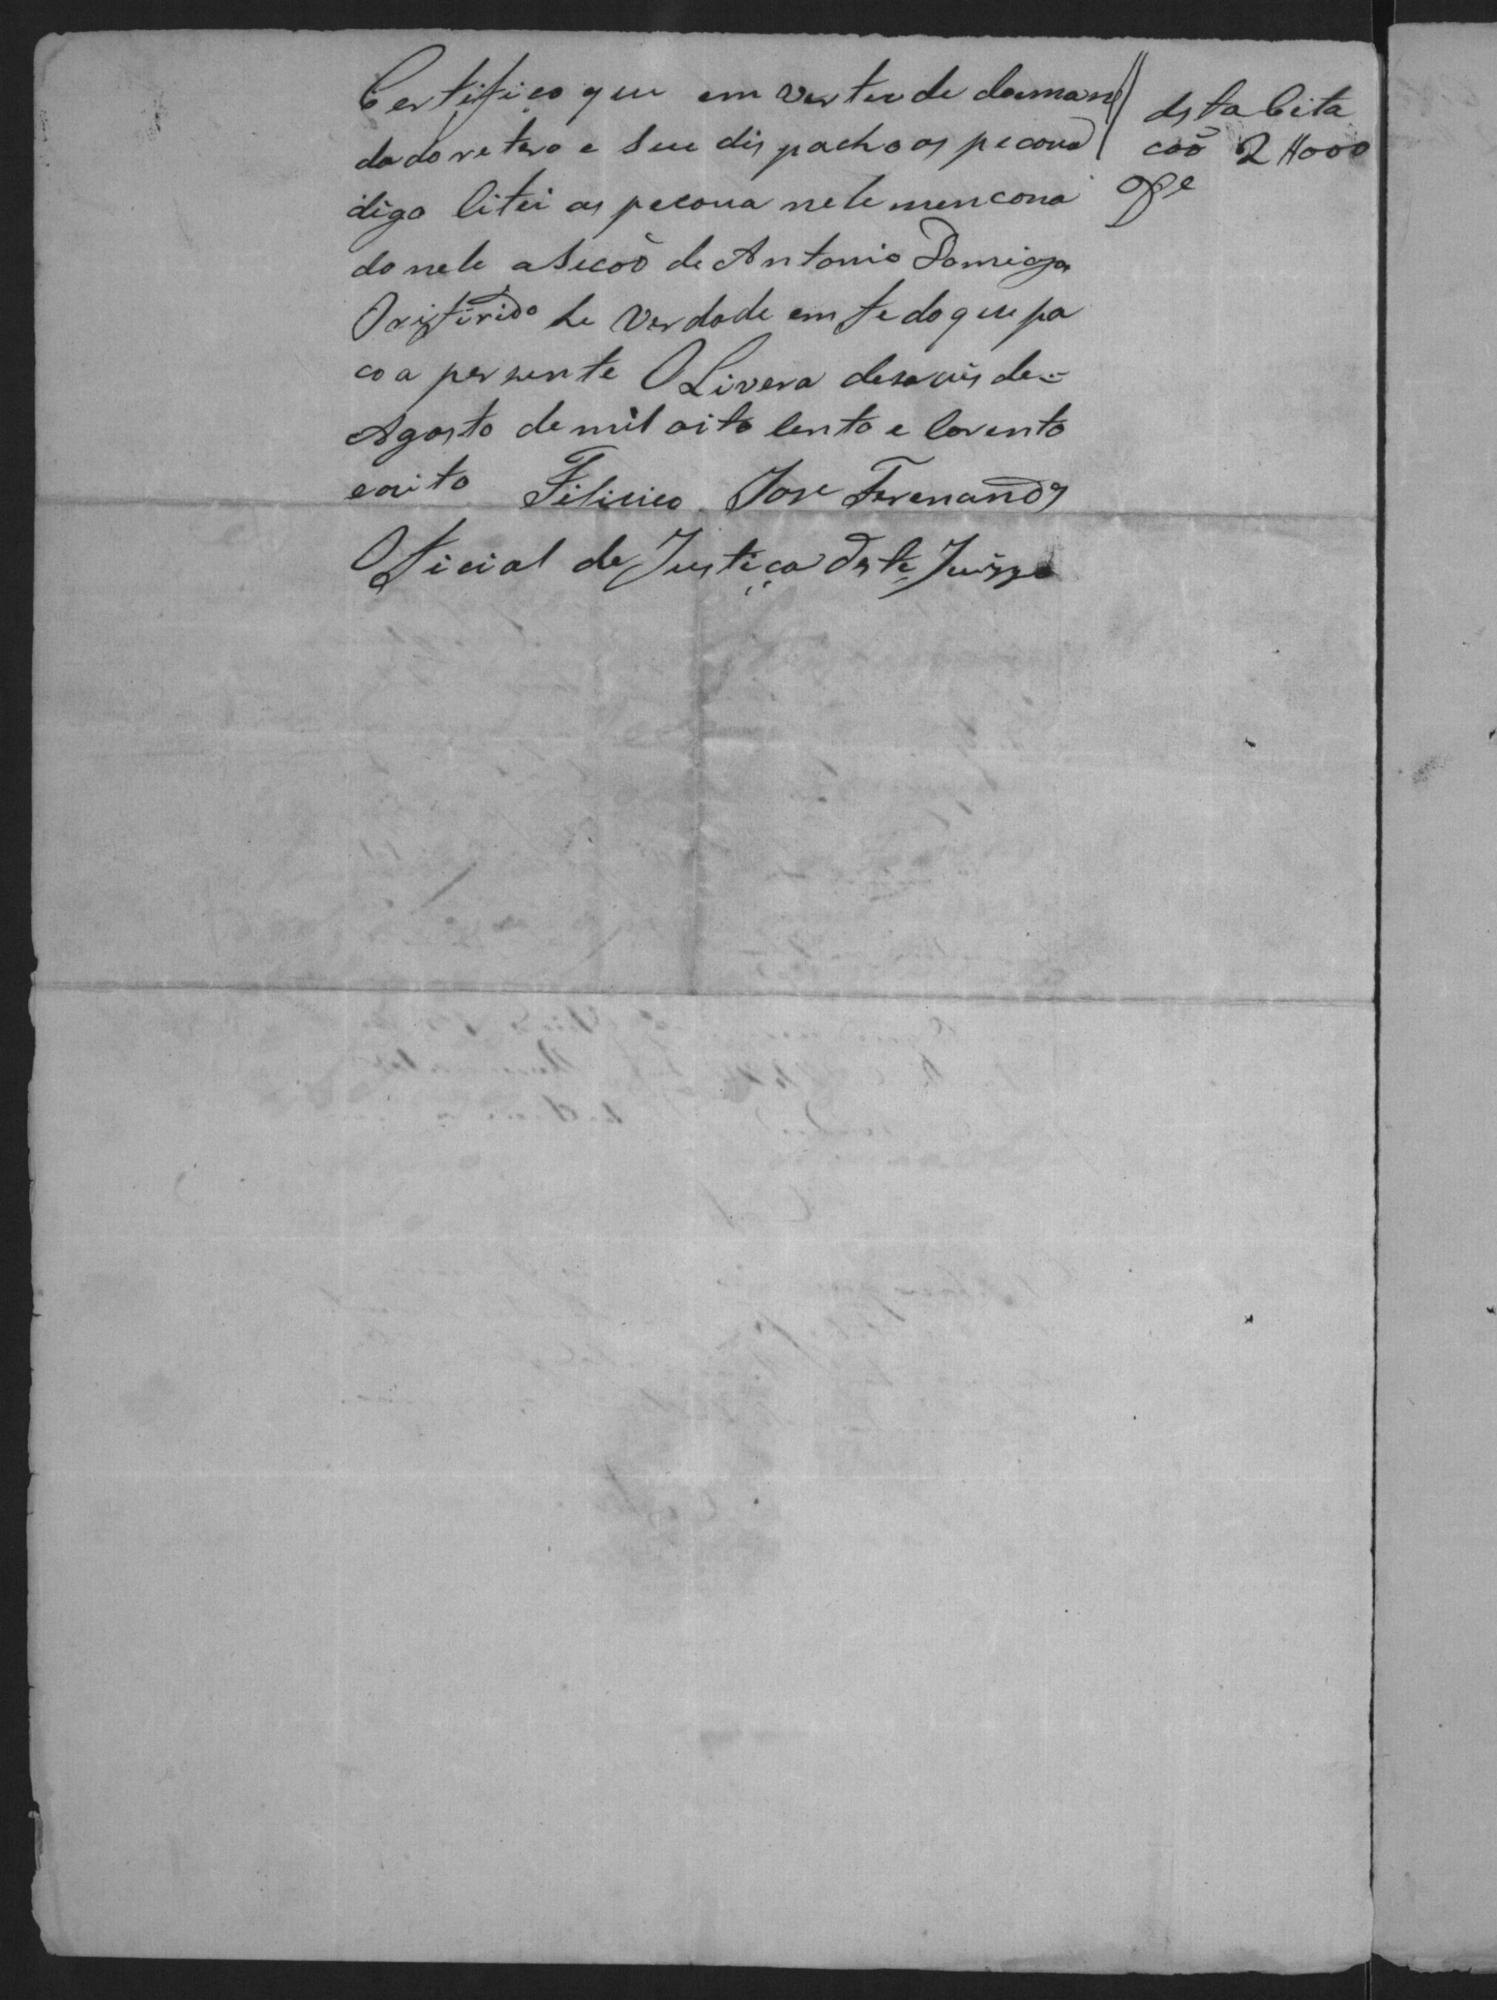 Certifico que em vertude doman
dado retero e seu dispacho as pecoua
digo Citei as pecoua nele menciona
do nele a Secoõ de Antonio Domigos
O rifirido he verdade em fe do que pa
co a persente OLivera deseis de
Agosto de mil oito Cento e Corento
e oito Filicico Jose Ferenandes
Oficial de Justiça deste Juizzo
desta Cita
coõ 2#000